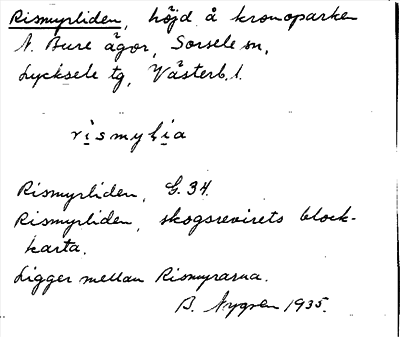 Rismyrliden, höjd å kronoparken
N. Bure ägor, Sorsele sn,
Lycksele tg, Västerb. l.
Rismyrliden, G. 34.
Rismyrliden, skogsrevirets block-
karta.
Ligger mellan Rismyrarna.
B. Nygren 1935.